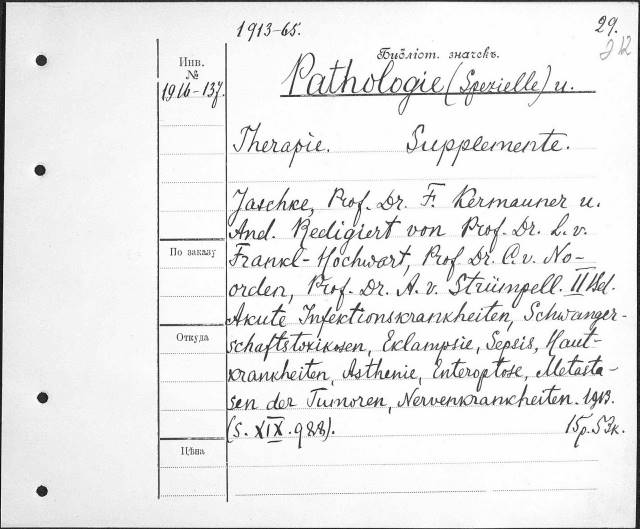 1913-65.
29.
212
Библіот. значекъ.
Инв.
№
1916-137.
Pathologie (Spezielle) u.
Therapie. Supplemente.
Jaschke, Prof. Dr. F. Kermauner u.
And. Redigiert von Prof. Dr. L. v.
Frankl-Hochwart, Prof. Dr. C. v. No-
orden, Prof. Dr. A. v. Strümpell. II Bd.
Akute Infektionskrankheiten, Schwanger-
schaftstoxikosen, Eklampsie, Sepsis, Haut-
krankheiten, Asthenie, Enteroptose, Metasta-
sen der Tumoren, Nervenkrankheiten. 1913.
(S. XIX. 988). 15р. 53к.
По заказу
Откуда
Цѣна